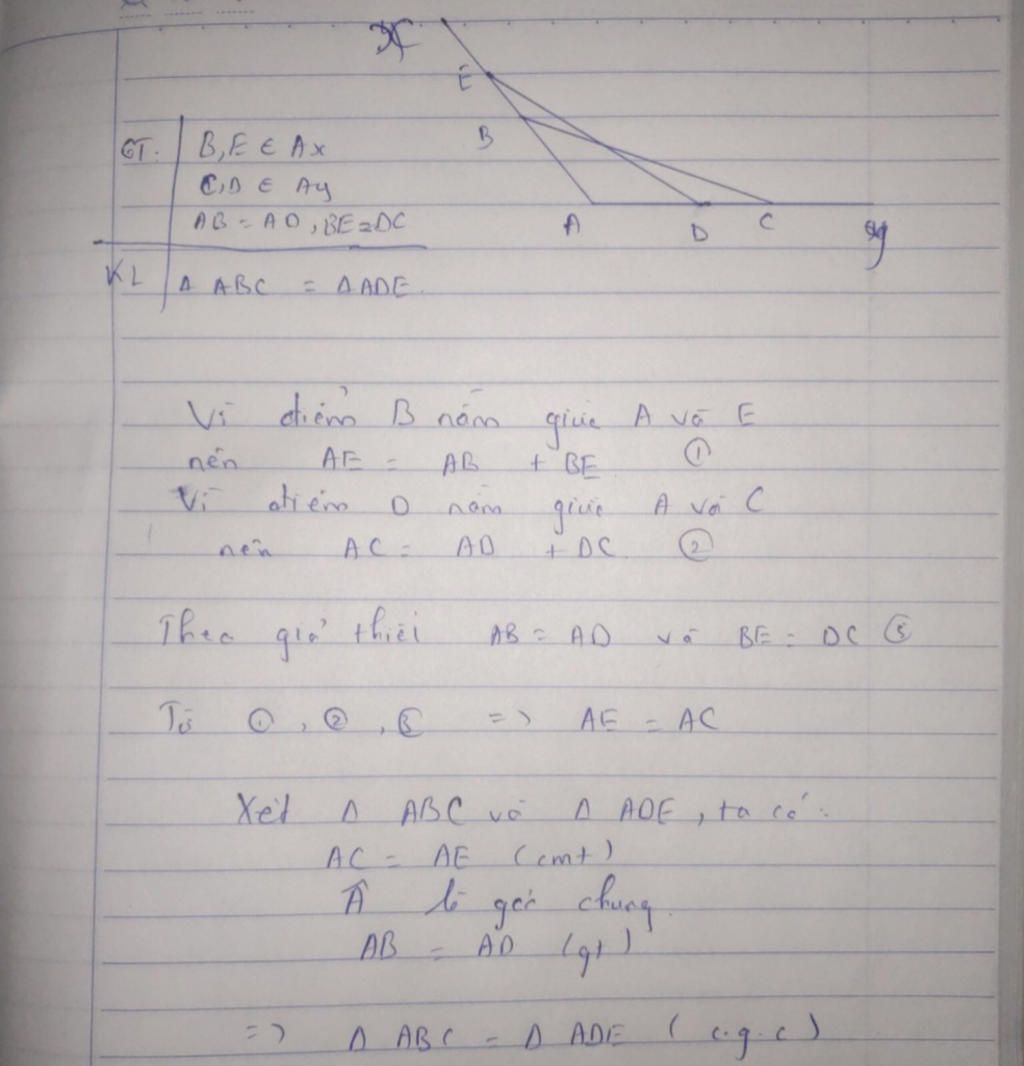 x
E
B
A D C y
GT. B, E ∈ Ax
C, D ∈ Ay
AB = AD, BE = DC
KL Δ ABC = Δ ADE.
Vì điểm B nằm giữa A và E
nên AE = AB + BE ①
Vì điểm D nằm giữa A và C
nên AC = AD + DC. ②
Theo giả thiết AB = AD và BE = DC ③
Từ ①, ②, ③ => AE = AC
Xét Δ ABC và Δ ADE, ta có:
AC = AE (cmt)
Â là góc chung.
AB = AD (gt)
=> Δ ABC = Δ ADE (c.g.c)